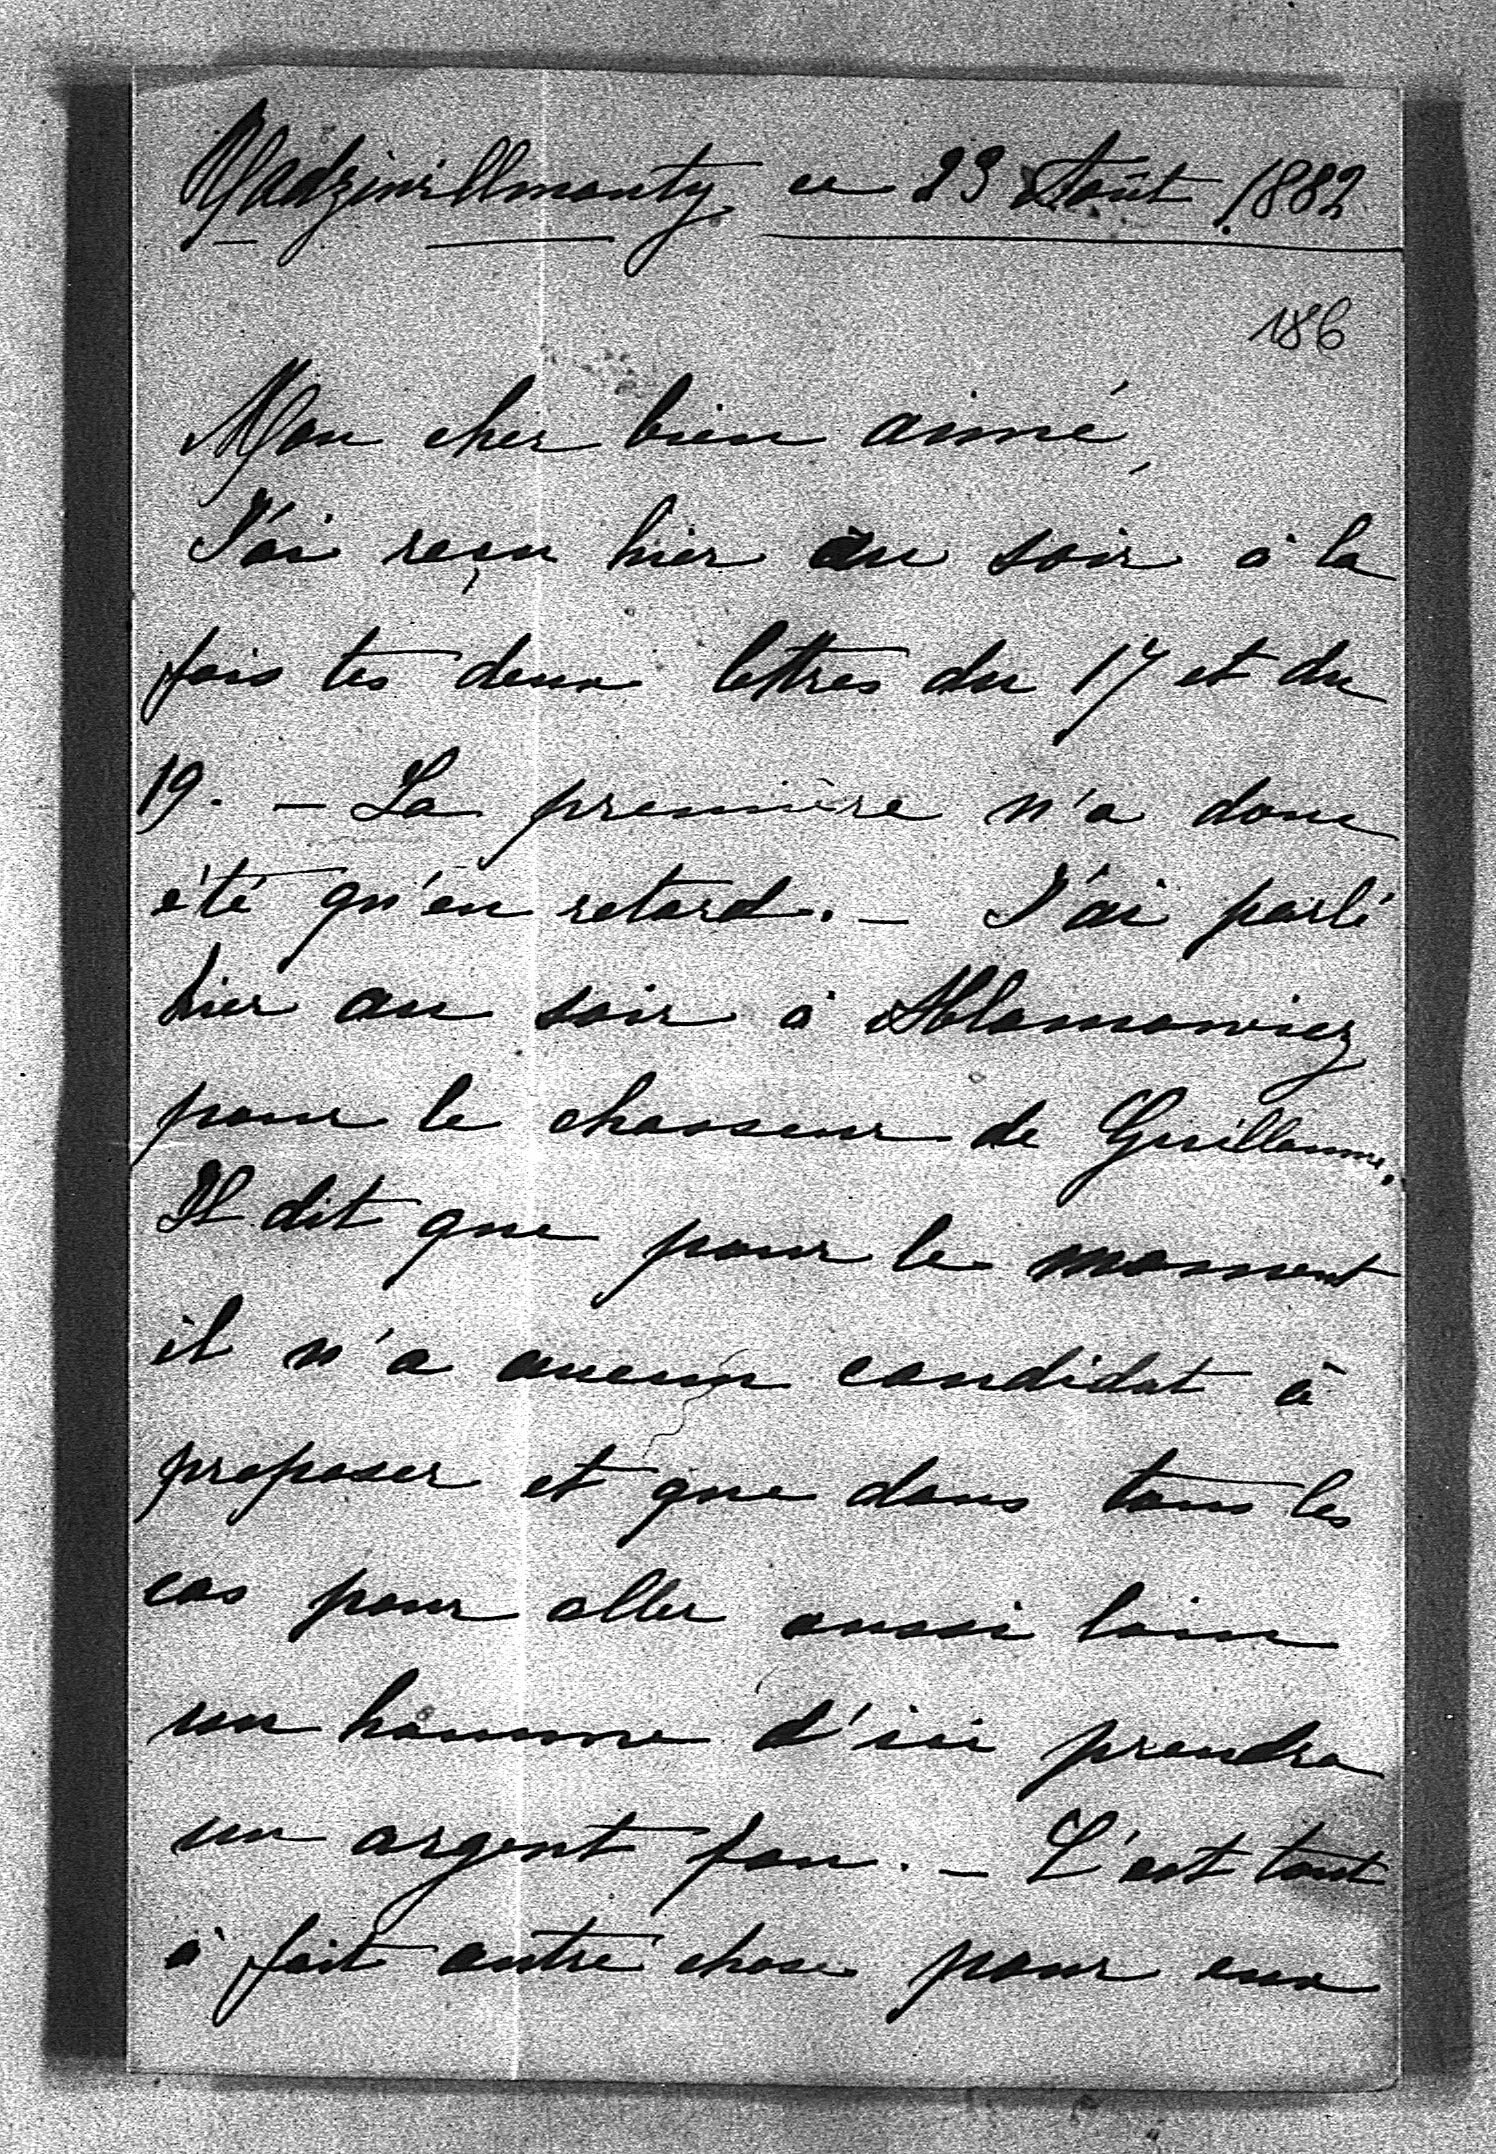 Radziwillmonty ce 23 Août 1882
186
Mon cher bien aimé,
J'ai reçu hier au soir à la
fois tes deux lettres du 17 et du
19. – La première n'a donc
été qu'en retard. – J'ai parlé
hier au soir à Ablamowicz
pour le chasseur de Guillaume.
Il dit que pour le moment
il n'a aucun candidat à
proposer et que dans tous les
cas pour aller aussi loin
un homme d'ici prendra
un argent fou. – C'est tout
à fait autre chose pour eux